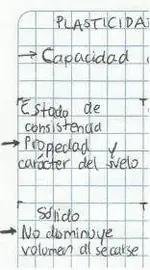 PLASTICIDA
→ Capacidad
Estado de
consistencia
→ Propiedad y
carácter del suelo
Sólido
→ No disminuye
volumen al secarse